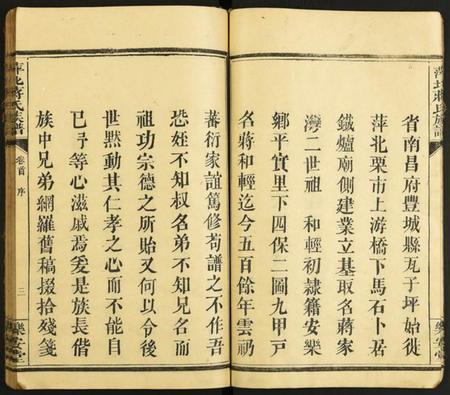 萍北蔣氏族譜
省南昌府豐城縣瓦子坪始徙
萍北栗市上游橋下馬石卜居
鐵爐廟側建業立基取名蔣家
灣二世祖 和輕初隸籍安樂
鄉平實里下四保二圖九甲戸
名蔣和輕迄今五百餘年雲礽
蕃衍家誼篤修苟譜之不作吾
恐姪不知叔名弟不知兄名而
祖功宗德之所貽又何以令後
世黙動其仁孝之心而不能自
已予等心滋戚焉爰是族長偕
族中兄弟網羅舊稿掇拾殘箋
萍北蔣氏族譜
卷首 序
三
樂安堂